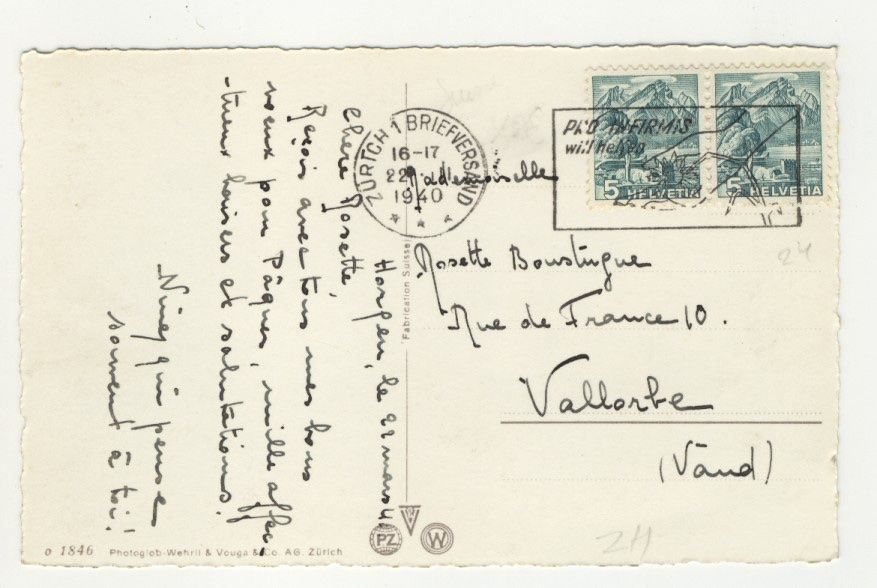 Horgen, le 22 mars 4
Chère Rosette,
Reçois avec tous mes bons
voeux pour Pâques, mille affec-
-tueux baisers et salutations.
Niney qui pense
souvent à toi!
ZÜRICH 1 BRIEFVERSAND
16-17
22. III
1940
PRO INFIRMIS
will helfen
5 HELVETIA
5 HELVETIA
Mademoiselle
Rosette Boustingue
Rue de France 10.
Vallorbe
(Vaud)
24
ZH
Fabrication Suisse
PZ W
o 1846 Photoglob-Wehrli & Vouga & Co. AG. Zürich